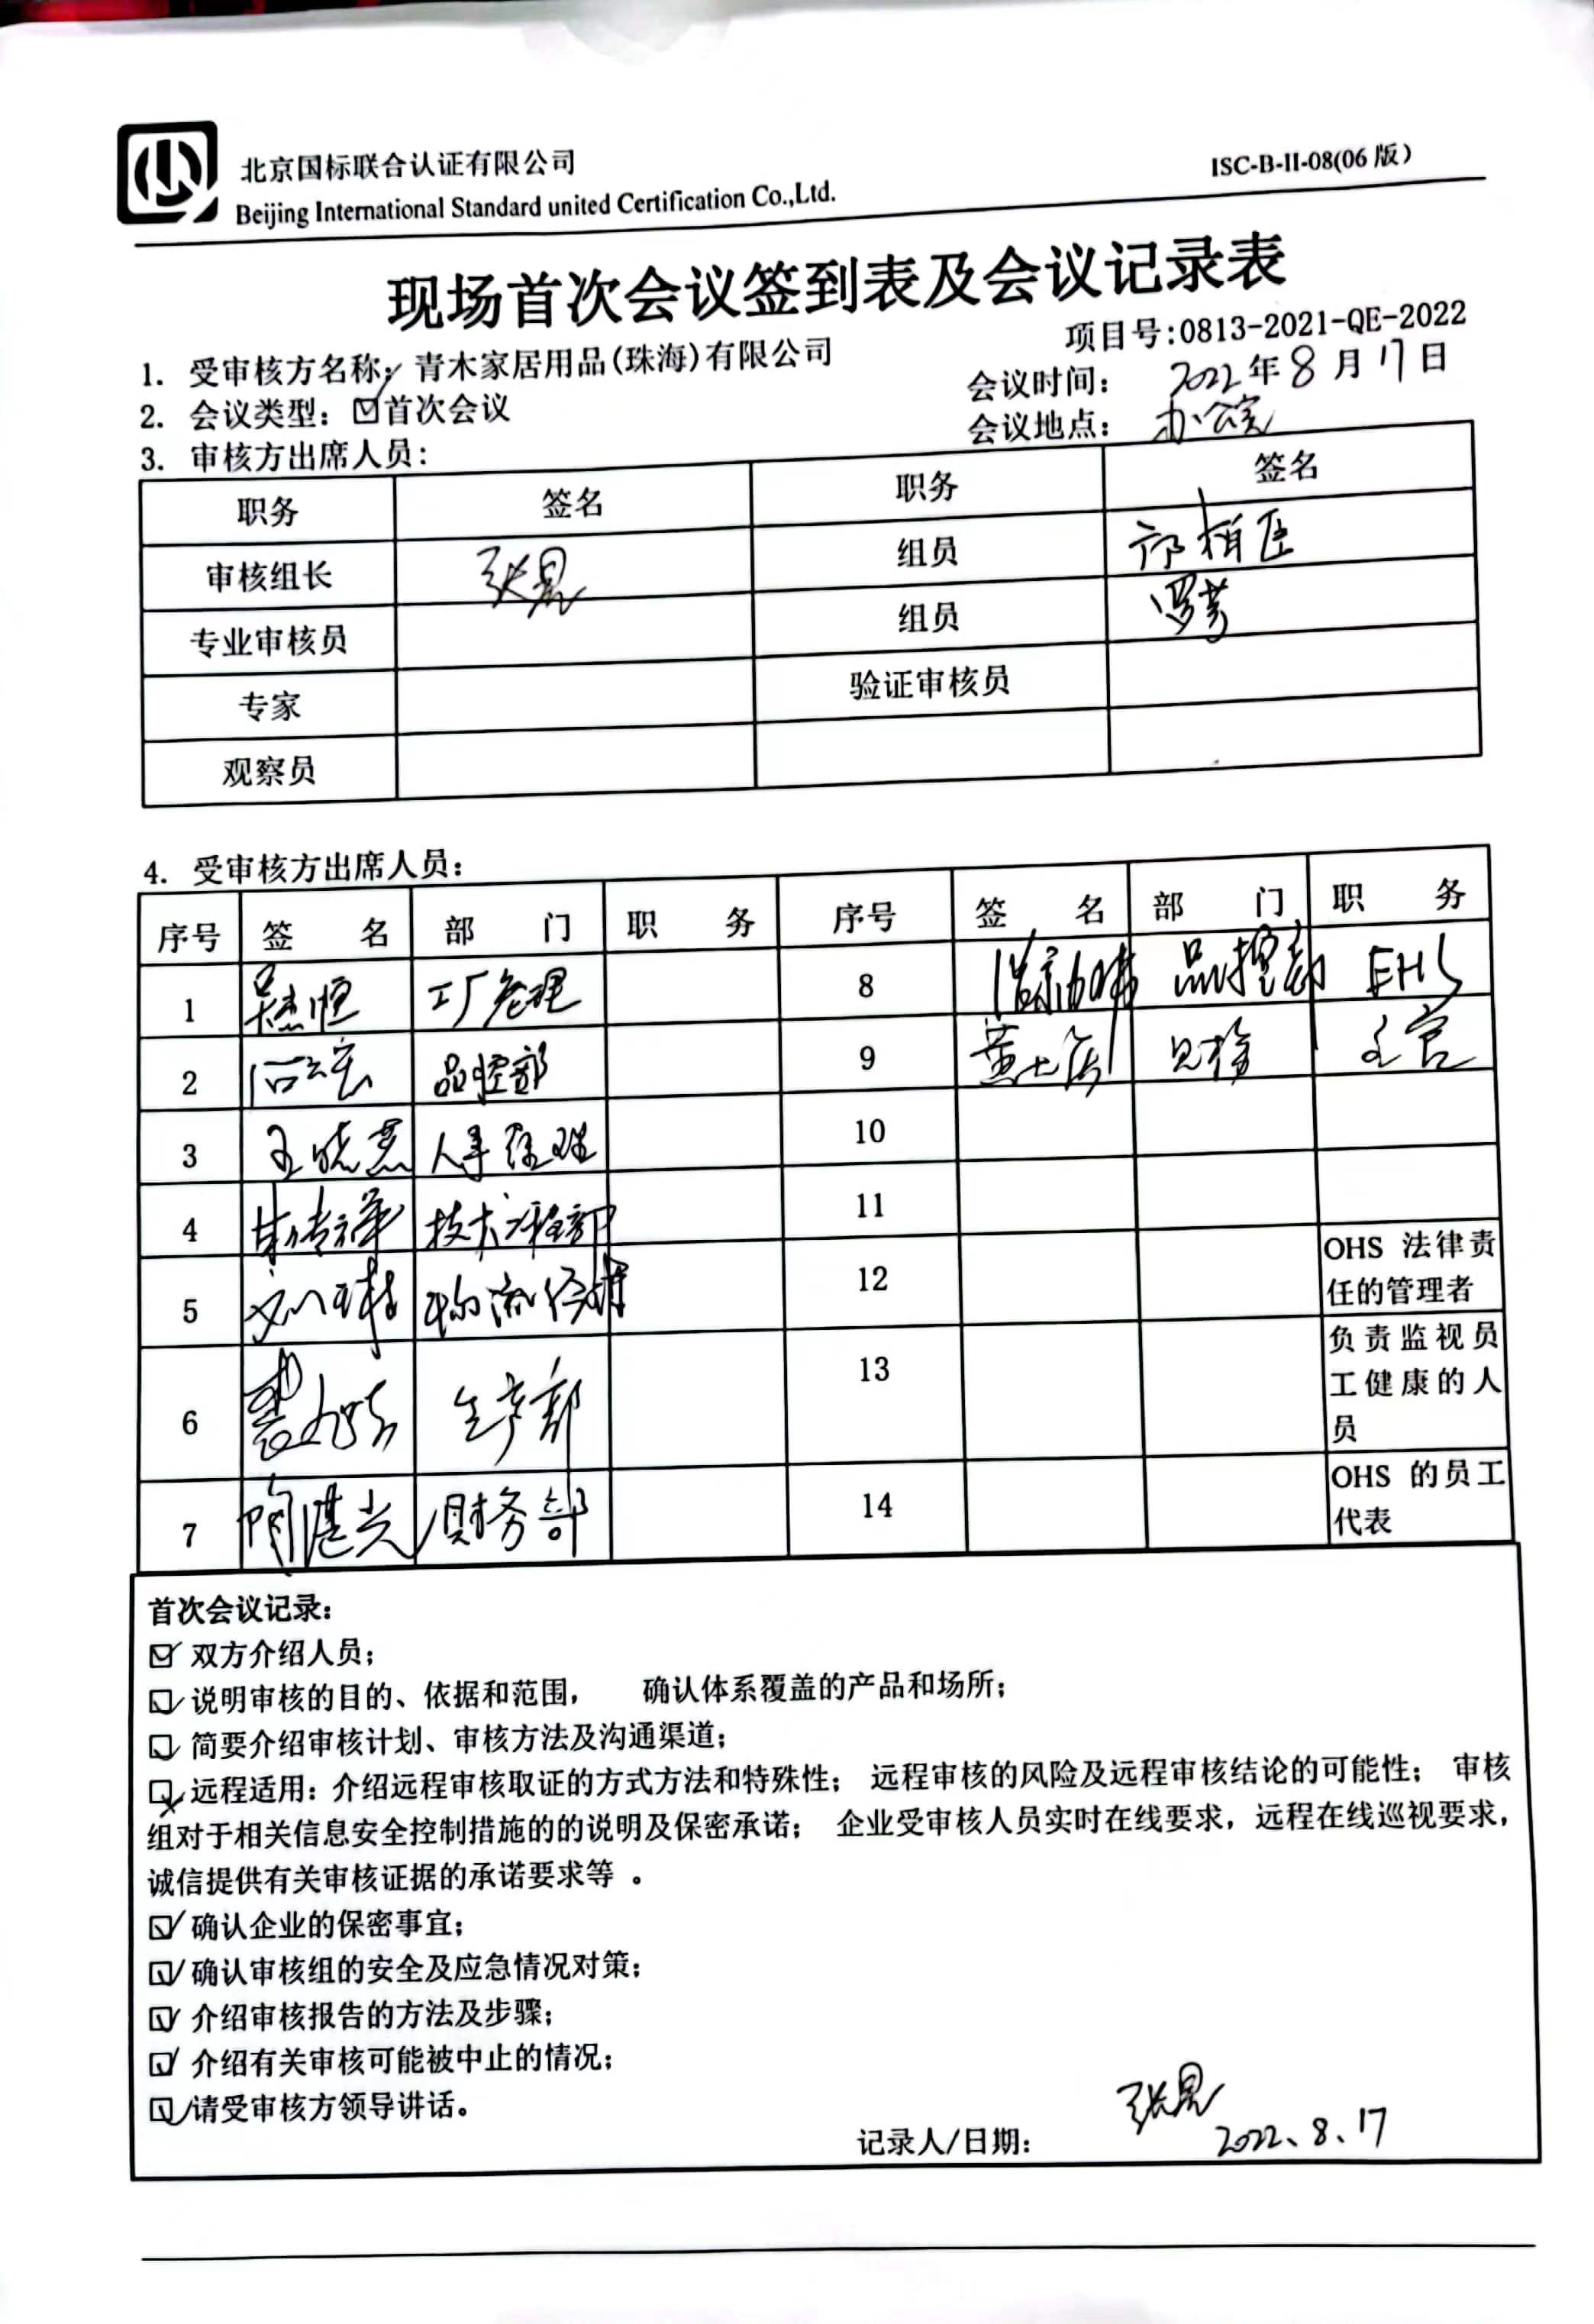 北京国标联合认证有限公司
ISC-B-II-08(06 版)
Beijing International Standard united Certification Co.,Ltd.
现场首次会议签到表及会议记录表
项目号:0813-2021-QE-2022
1. 受审核方名称: 青木家居用品(珠海)有限公司
会议时间: 2022年8月17日
2. 会议类型: ☑首次会议
会议地点: 办公室
3. 审核方出席人员:
职务 签名 职务 签名
审核组长 张晃 组员
专业审核员 组员 罗芳
专家 验证审核员
观察员
4. 受审核方出席人员:
序号 签名 部门 职务 序号 签名 部门 职务
1 工厂管理 8 品控部 EHS
2 品控部 9
3 王晓燕 人事经理 10
4 技术工程部 11
5 物流经理 12 OHS 法律责任的管理者
6 生产部 13 负责监视员工健康的人员
7 陶湛光 财务部 14 OHS 的员工代表
首次会议记录:
☑ 双方介绍人员;
☑ 说明审核的目的、依据和范围, 确认体系覆盖的产品和场所;
☑ 简要介绍审核计划、审核方法及沟通渠道;
☒ 远程适用: 介绍远程审核取证的方式方法和特殊性; 远程审核的风险及远程审核结论的可能性; 审核
组对于相关信息安全控制措施的的说明及保密承诺; 企业受审核人员实时在线要求, 远程在线巡视要求,
诚信提供有关审核证据的承诺要求等 。
☑ 确认企业的保密事宜;
☑ 确认审核组的安全及应急情况对策;
☑ 介绍审核报告的方法及步骤;
☑ 介绍有关审核可能被中止的情况;
☑ 请受审核方领导讲话。
记录人/日期: 张晃 2022、8、17